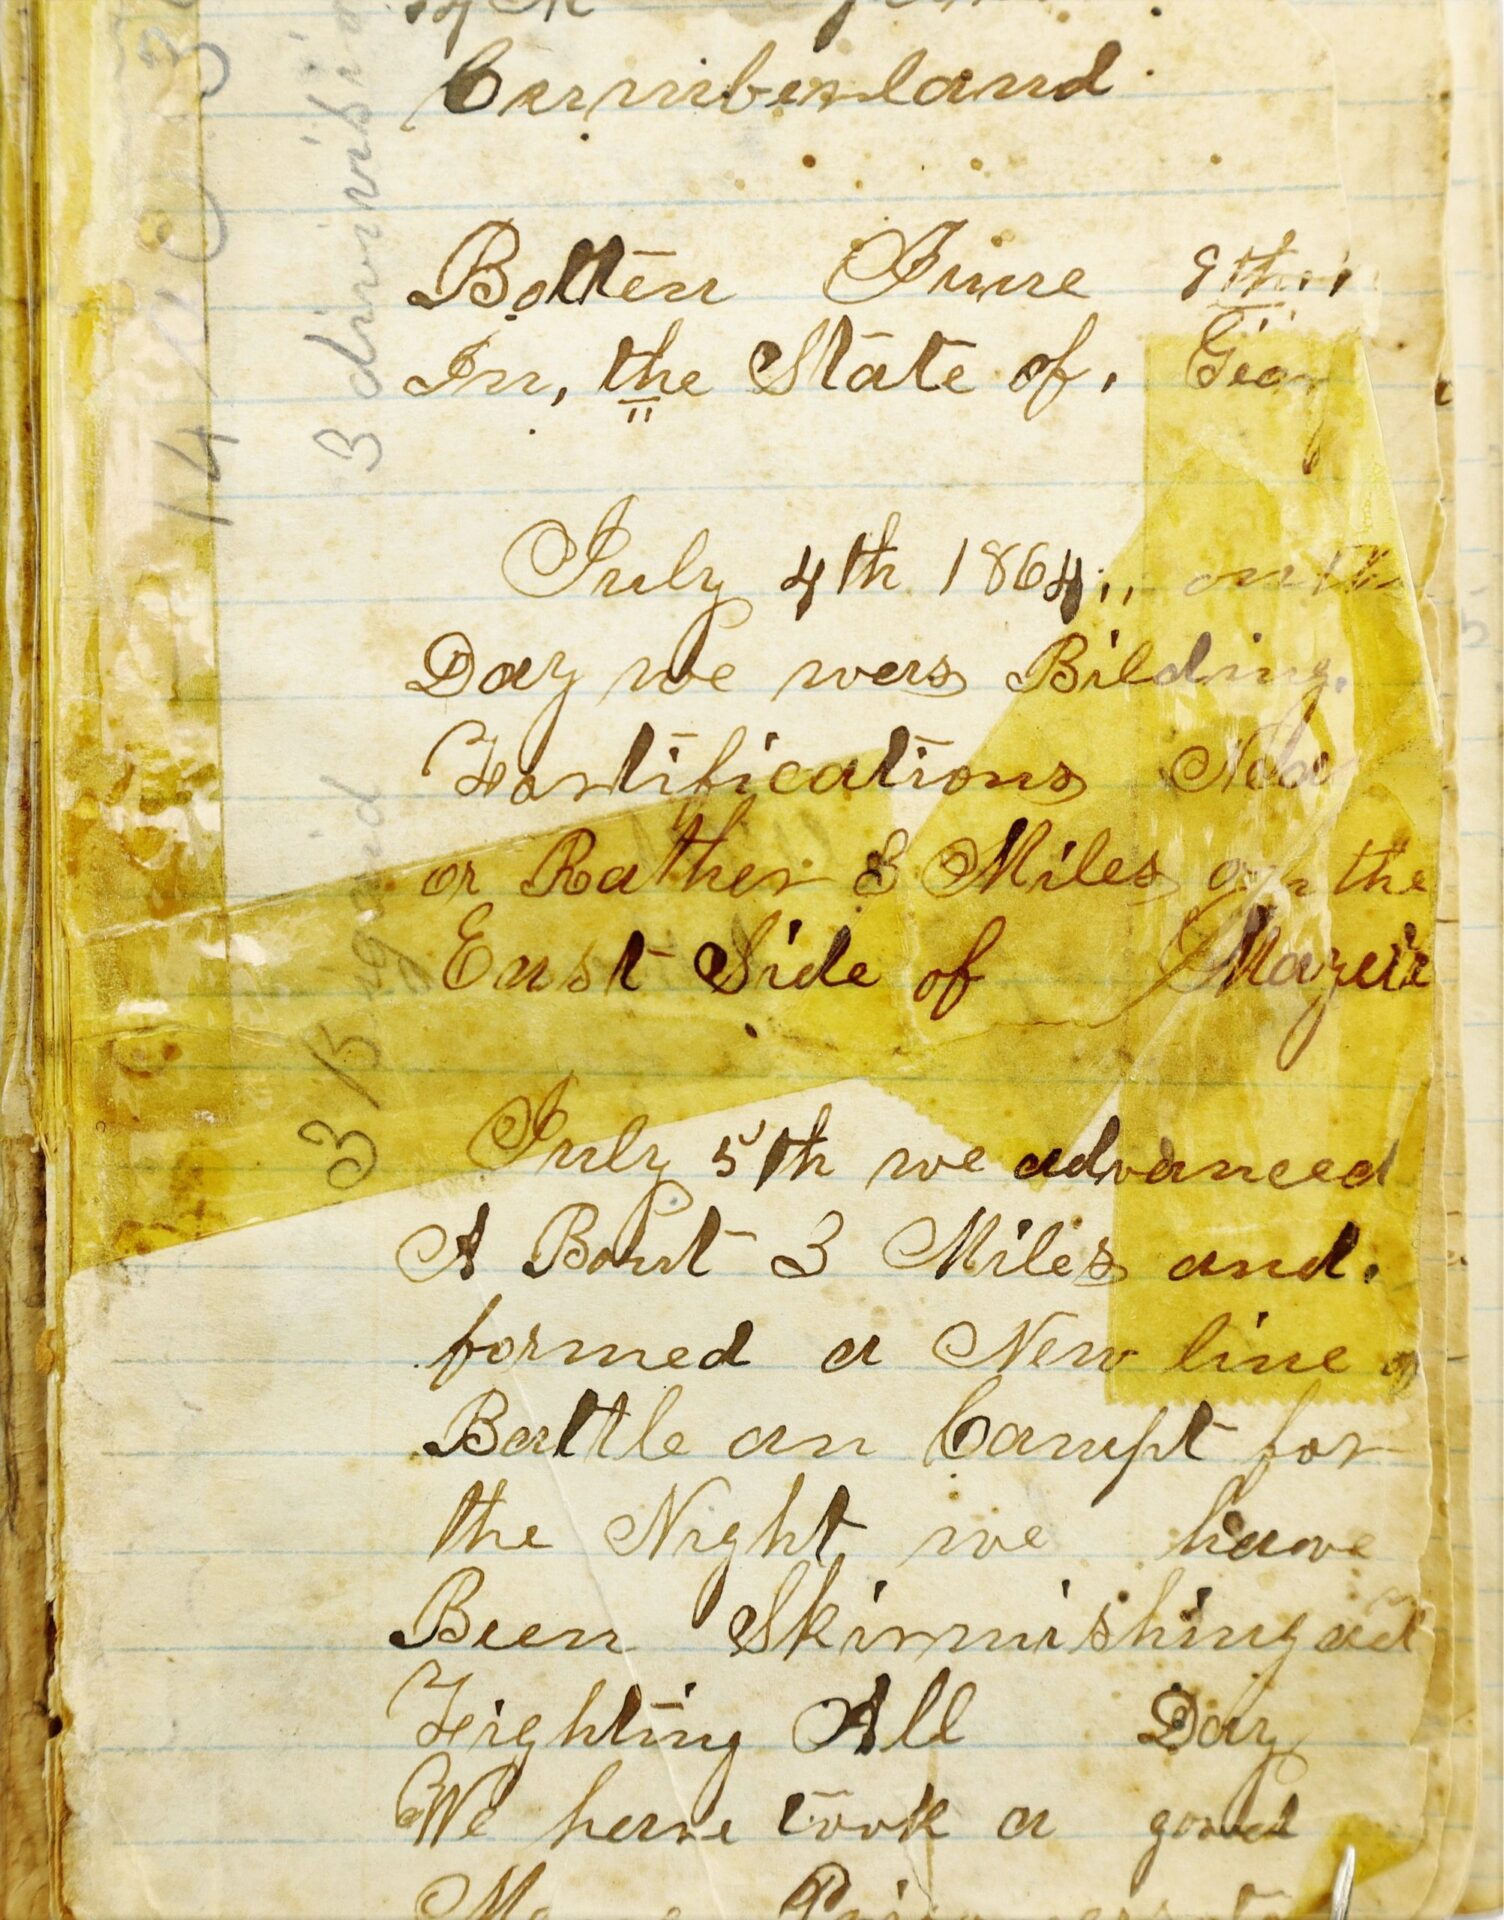 Cumberland.
Botten June 8th
In, the State of, Geor
July 4th 1864,, on
Day we wers Bilding.
Fortifications Near
or Rather 8 Miles on the
East Side of Mazeri
July 5th we advanced
A Bout 3 Miles and.
formed a New line of
Battle an Campt for
the Night we have
Been Skirmishing ad
Fighting All Day
We have took a good
Prisoners
14
3 divisi
3 Brigaid